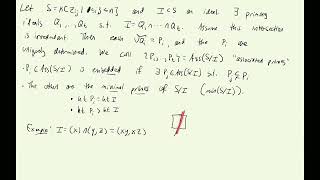 Let S = K[z_ij | 1≤i,j≤n] and I ⊂ S an ideal ∃ primary
ideals Q1, ..., Qt s.t. I = Q1 ∩ ... ∩ Qt. Assume this intersection
is irredundant. Then each √Qi = Pi, and the Pi are
uniquely determined. We call {P1, ..., Pt} = Ass(S/I) "associated primes"
• Pi ∈ Ass(S/I) is embedded if ∃ Pj ∈ Ass(S/I) s.t. Pj ⊊ Pi
• The others are the minimal primes of S/I (min(S/I))
• ht Pi = ht I
• ht Pi > ht I
Example: I = (x) ∩ (y,z) = (xy, xz)